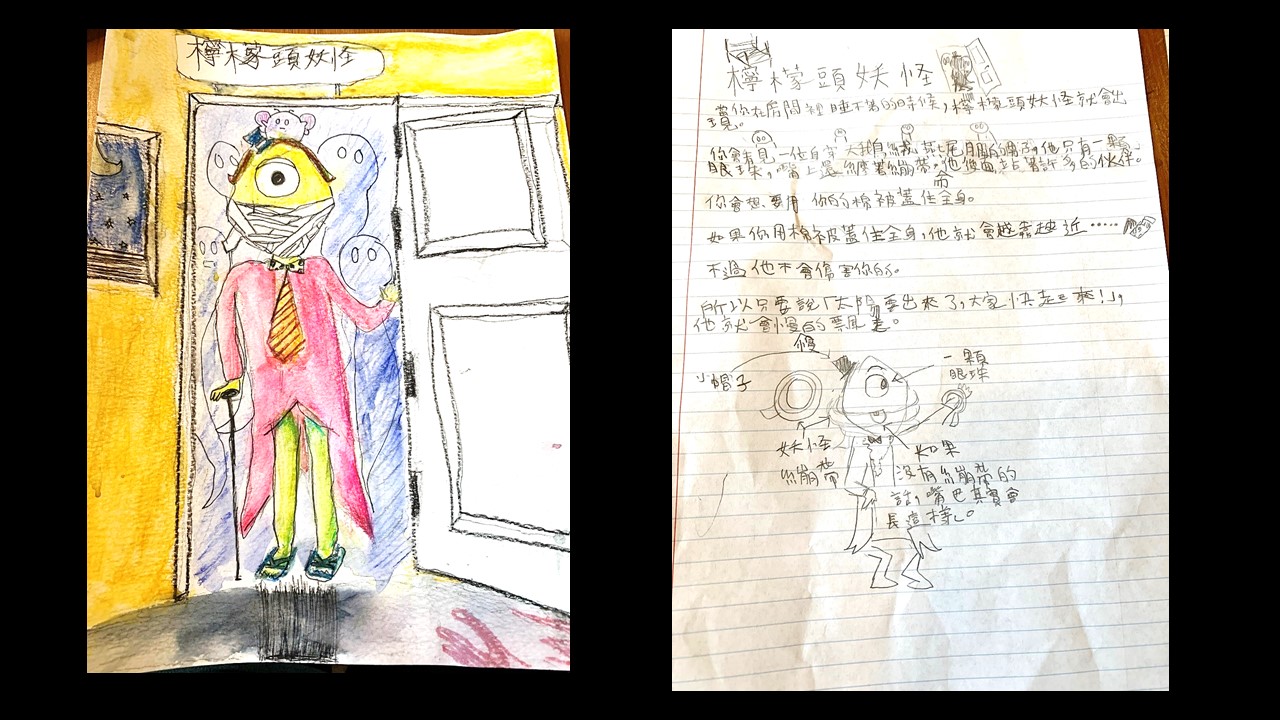 檸檬頭妖怪
檸檬頭妖怪
當你在房間裡睡不著的時候，檸檬頭妖怪就會出
現。
你會看見一位身穿
他只有一顆
眼球，嘴上還纏著繃帶，他後面站著許多的伙伴。
你會想要用你的棉被蓋住全身。
如果你用棉被蓋住全身，他就會越靠越近……
不過他不會傷害你的。
所以只要說「太陽要出來了，大家快起來！」，
他就會慢慢的飄走。
小帽子
一顆
眼球
妖怪
繃帶
如果
沒有繃帶的
話，嘴巴其實會
長這樣。